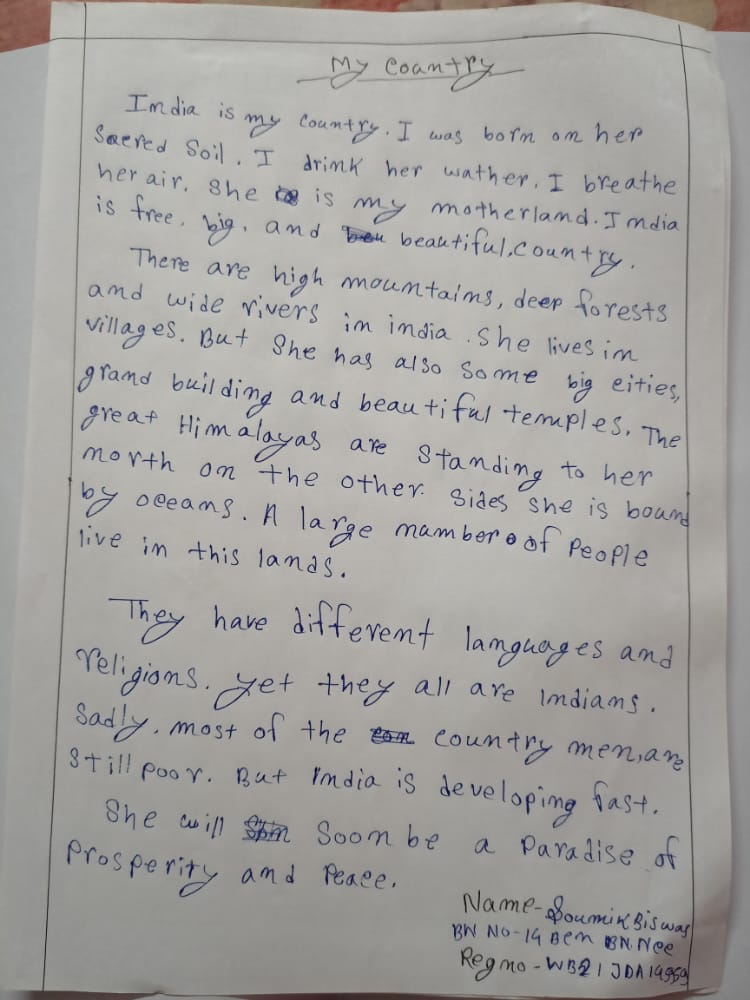 My Coantry
India is my Country. I was born on her
Sacred Soil. I drink her wather. I breathe
her air. She is my motherland. India
is free. big. and beautiful. Country.
There are high mountains, deep forests
and wide rivers in india. She lives in
villages. But She has also Some big cities,
grand building and beautiful temples. The
great Himalayas are Standing to her
north on the other. Sides She is bound
by oceans. A large number of People
live in this lands.
They have different languages and
religions. yet they all are Indians.
Sadly. most of the country men, are
Still poor. But India is developing fast.
She will Soon be a Paradise of
Prosperity and Peace.
Name- Soumik Biswas
BN No-14 Ben BN. Nee
Reg no - WB21 JDA